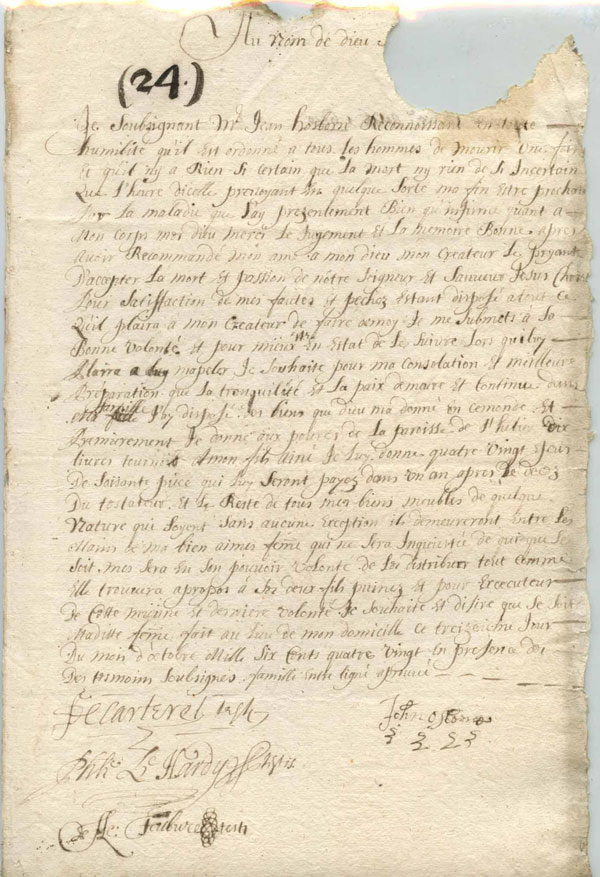 Au Nom de dieu
(24.)
Je Soubsignant Mr. Jean hosborn Reconnoissant en toute
humilité qu'il Est ordonné a tous les hommes de Mourir Une fois
Et qu'il ny a Rien Si Certain que la mort ny rien de Si Incertain
Que l'heure d'icelle prevoyant En quelque Sorte ma fin Estre prochai
Sur la maladie que J'ay prezentement Bien qu'infirme quant a
Mon Corps mes dieu mercy Le Jugement Et La memoire Bonne apres
Avoir Recommandé mon ame a mon dieu mon Createur Le pryant
D'accepter La mort Et passion de nôtre Seigneur Et Sauveur Jesus Christ
Pour Satisfaction de mes fautes Et pechez Estant disposé a tout Ce
Qu'il plaira a mon Createur de faire de moy Je me Submets a Sa
Bonne Volonté Et pour mieux En Estat de Le Suivre Lors qu'il luy
Plaira a luy mapeler Je Souhaite pour ma Consolation Et meilleure
Preparation que La tranquilité Et La paix demeure Et Continue dans
famille J'ay disposé des biens que dieu ma donné en ce monde Et
Premierement Je donne aux pouvres de La paroisse de St helier dix
livres tournois A mon fils ainé Je Luy donne quatre Vingt
De Soisante piece qui Luy Seront payez dans Un an apres Le decez
Du testateur Et Le Reste de tous mes biens meubles de quelque
Nature qui Soyent Sans aucune exception ils demeureront Entre Les
Mains de ma bien aimee feme qui ne Sera Inquietée de qui que Se
Soit mes Sera En Son pouvoir Volonté de Les distribuer tout Comme
Elle trouvera apropos a Ses deux fils puinez Et pour Executeur
De Cette mienne Et derniere Volonté Je Souhaite Et desire que Se Soit
Madite feme fait au Lieu de mon domicille Ce treizieme Jour
Du mois d'octobre Mille Six Cents quatre Vingt En presence de
Des tesmoins Soubsignes famille Entre ligne aprouvé
De Carteret testm
John osborne
Phle: Le Hardy testis
testi